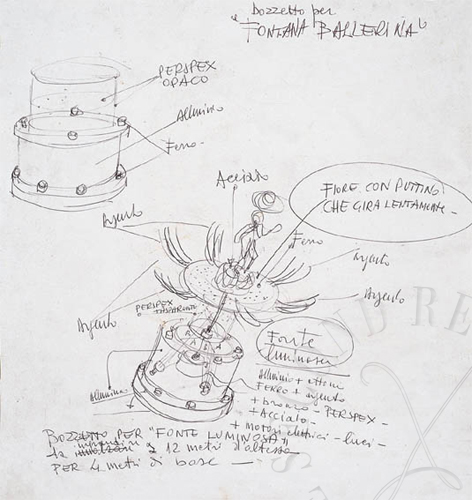 Bozzetto per
"FONTANA BALLERINA"
PERSPEX
OPACO
Alluminio
Ferro
Acciaio
FIORE CON PUTTINO
CHE GIRA LENTAMENTE -
Argento
Ferro
Argento
Argento
Argento
PERSPEX
TRASPARENTE
Fonte
luminosa
Alluminio
Alluminio + ottone
FERRO + argento
+ bronzo - PERSPEX -
+ Acciaio -
+ motori elettrici - luci -
BOZZETTO PER "FONTE LUMINOSA"
da a 12 metri d'altezza
PER 4 metri di base -
ND RE